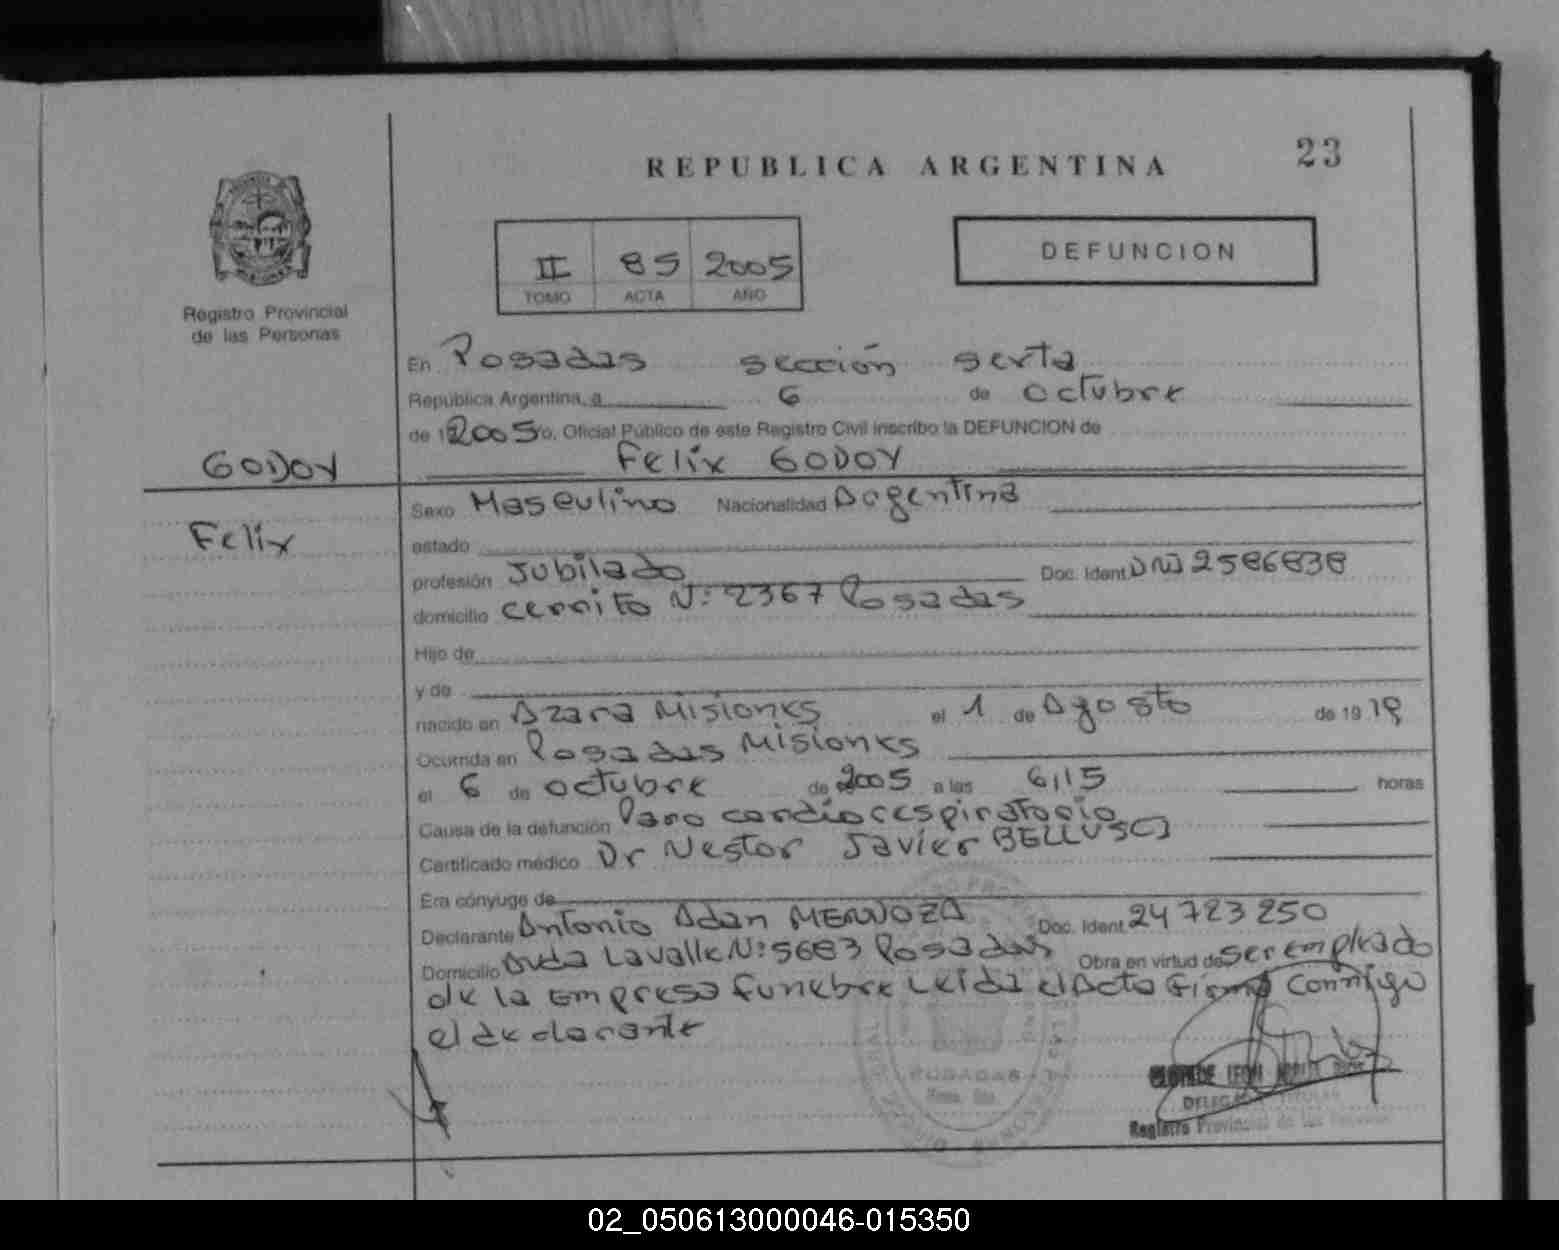 REPUBLICA ARGENTINA
23
II 85 2005
TOMO ACTA AÑO
DEFUNCION
Registro Provincial
de las Personas
En Posadas sección sexta
Republica Argentina, a 6 de octubre
de 2005 Oficial Público de este Registro Civil inscribo la DEFUNCION de
GODOY
Felix GODOY
Felix
Sexo Masculino Nacionalidad Argentina
estado
profesión Jubilado Doc. Ident. DNI 2586838
domicilio Cerrito N: 2367 Posadas
Hijo de
y de
nacido en Azara Misiones el 1 de Agosto de 19 19
Ocurrida en Posadas Misiones
el 6 de octubre de 2005 a las 6,15 horas
Causa de la defunción Paro cardiorespiratorio
Certificado médico Dr Nestor Javier BELLUSCI
Era cónyuge de
Declarante Antonio Adan MENDOZA Doc. Ident. 24723250
Domicilio Avda Lavalle N: 5683 Posadas Obra en virtud de ser empleado
de la Empresa funebre Leida el Acta Firma Conmigo
el declarante
POSADAS
DELEGADO TITULAR
Registro Provincial de las Personas
02_050613000046-015350